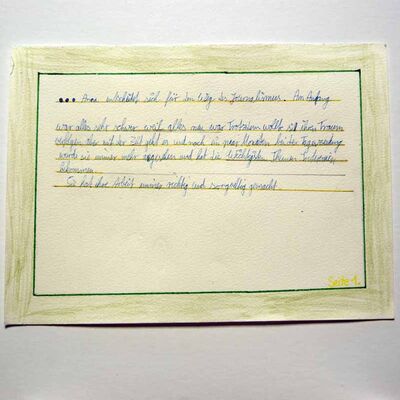 ... Anna entscheidet sich für den Weg des Journalismus. Am Anfang
war alles sehr schwer weil alles neu war Trotzdem wollte sie ihren Traum
verfolgen aber mit der Zeit geht es und nach ein paar Monaten bei der Tageszeitung
wurde sie immer mehr angesehen und hat die wichtigsten Themen
bekommen.
Sie hat ihre Arbeit immer richtig und sorgfältig gemacht.
Seite 1.